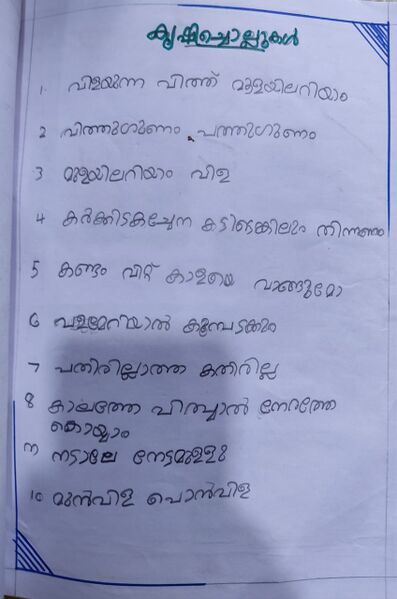 കൃഷിച്ചൊല്ലുകൾ
1. വിളയുന്ന വിത്ത് മുളയിലറിയാം
2 വിത്തുഗുണം പത്തുഗുണം
3 മുളയിലറിയാം വിള
4 കർക്കിടകച്ചേന കട്ടിട്ടെങ്കിലും തിന്നണം
5 കണ്ടം വിറ്റ് കാളയെ വാങ്ങുമോ
6 വളമേറിയാൽ കൂമ്പടക്കും
7 പതിരില്ലാത്ത കതിരില്ല
8 കാലത്തേ വിത്തച്ചാൽ നേരത്തേ
കൊയ്യാം
9 നട്ടാലേ നേട്ടമുള്ളൂ
10 മുൻവിള പൊൻവിള